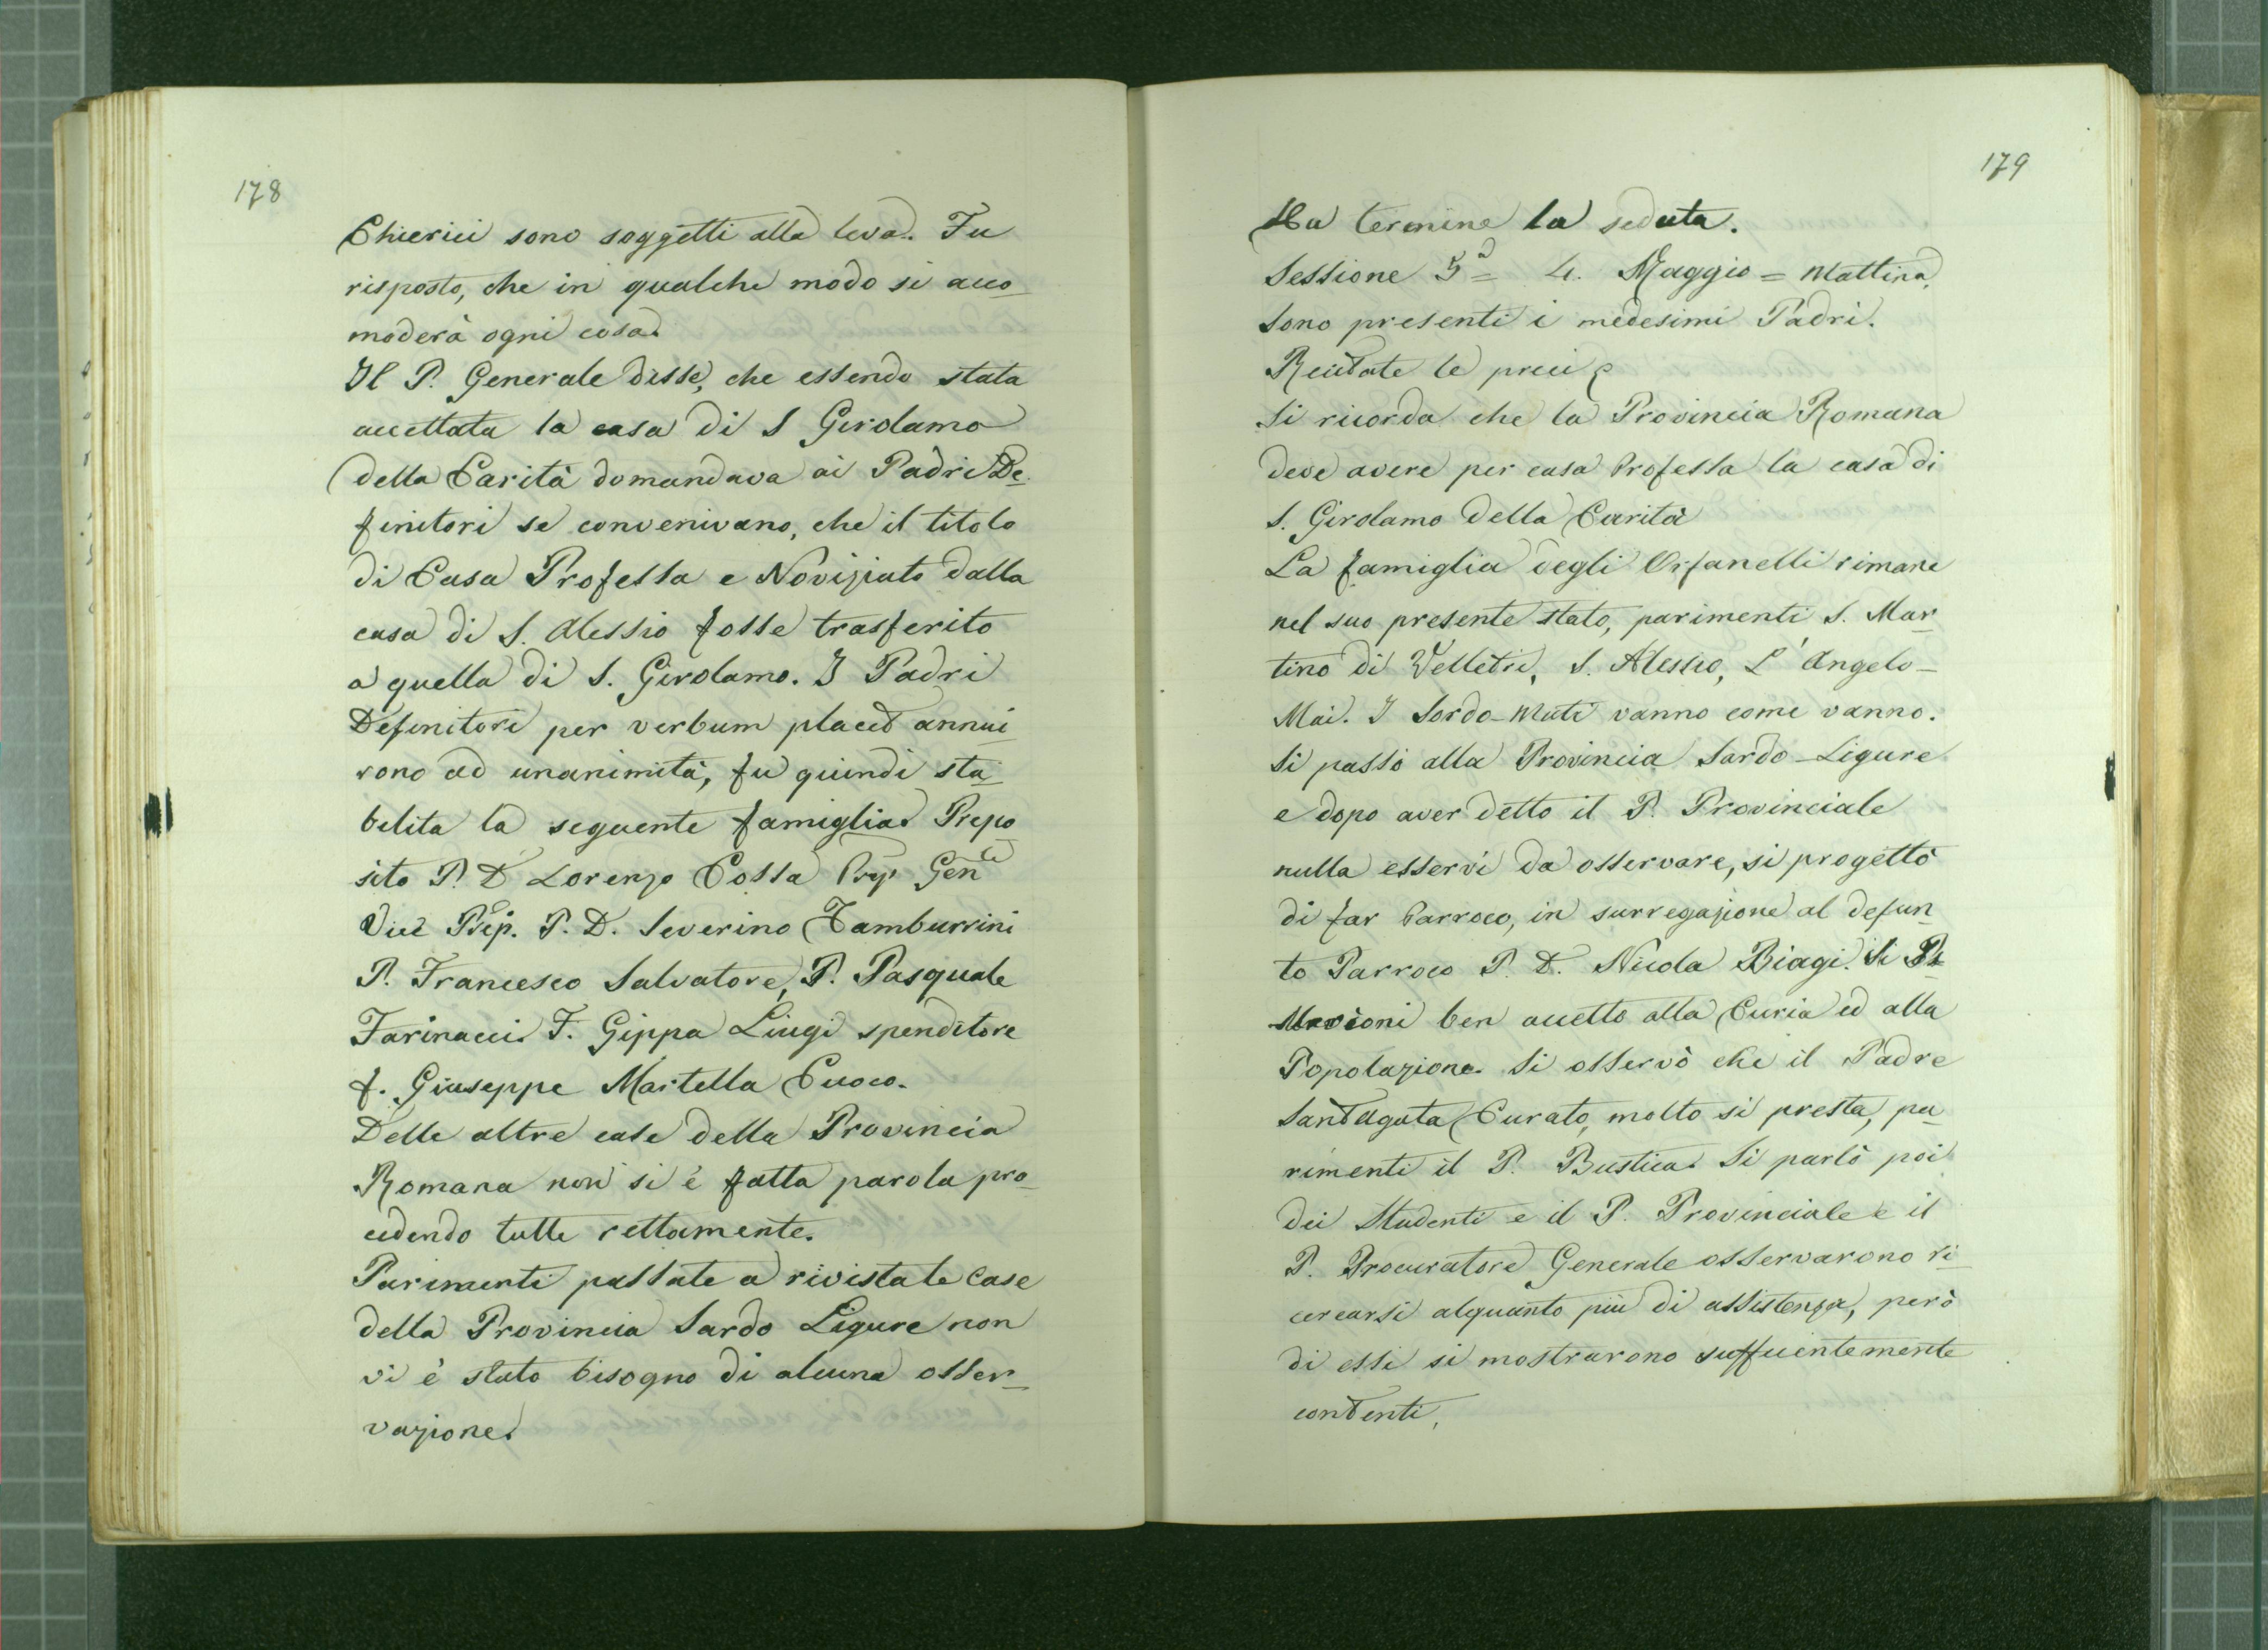 178
Chierici sono soggetti alla leva. Fu
risposto, che in qualche modo si acco-
moderà ogni cosa.
Il P. Generale disse, che essendo stata
accettata la casa di S Girolamo
della Carità domandava ai Padri De-
finitori se convenivano, che il titolo
di Casa Professa e Noviziato dalla
casa di S. Alessio fosse trasferito
a quella di S. Girolamo. I Padri
Definitori per verbum placet annui-
rono ad unanimità, fu quindi sta-
belita la seguente famiglia. Prepo
sito P. D. Lorenzo Cossa Gen
Vice Prep. P. D. Severino Tamburrini
P. Francesco Salvatore, P. Pasquale
Farinacci. F. Gippa Liugi spenditore
f. Giuseppe Martella Cuoco.
Delle altre case della Provincia
Romana non si è fatta parola pro-
cedendo tutte rettamente.
Parimenti passate a rivista le Case
della Provincia Sardo Ligure non
vi è stato bisogno di alcuna osser-
vazione.
179
Ha termine la seduta.
Sessione 5ª = 4. Maggio = Mattina,
Sono presenti i medesimi Padri.
Recitate le preci
Si ricorda che la Provincia Romana
deve avere per casa Professa la casa di
S. Girolamo della Carità
La famiglia degli Orfanelli rimane
nel suo presente stato, parimenti S. Mar-
tino di Velletri, S. Alessio, L'Angelo-
Mai. I Sordo-Muti vanno come vanno.
Si passò alla Provincia Sardo-Ligure
e dopo aver detto il P. Provinciale
nulla esservi da osservare, si progettò
di far Parroco, in surregazione al defun-
to Parroco P. D. Nicola Biagi. Il
ben accetto alla Curia ed alla
Popolazione. Si osservò che il Padre
Santagata Curato, molto si presta, pa-
rimenti il P. Bustica. Si parlò poi
dei Studenti e il P. Provinciale e il
P. Procuratore Generale osservarono ri-
cercarsi alquanto più di assistenza, però
di essi si mostrarono sufficientemente
contenti.